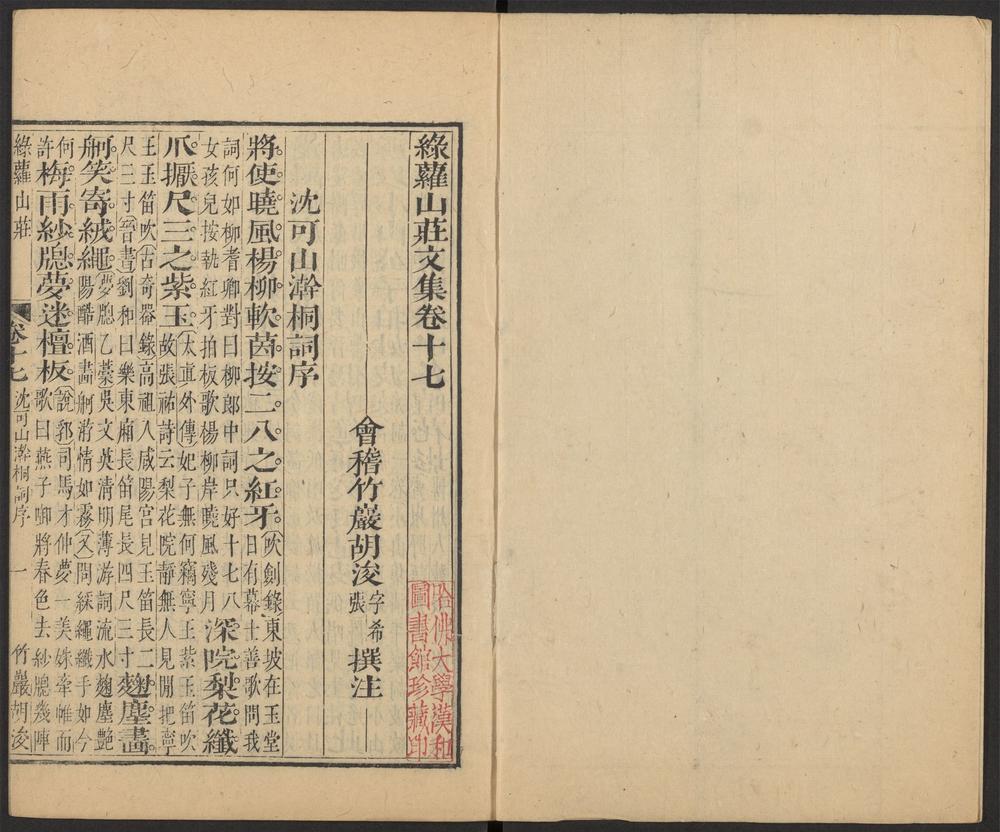 綠蘿山莊文集卷十七
會稽竹巖胡浚字希張撰注
哈佛大學漢和
圖書館珍藏印
沈可山澣桐詞序
將使曉風楊柳軟茵按二八之紅牙吹劍錄東坡在玉堂日有幕士善歌問我
詞何如柳耆卿對曰柳郎中詞只好十七八女孩兒按執紅牙拍板歌楊柳岸曉風殘月深院梨花纖
爪擫尺三之紫玉太眞外傳妃子無何竊寧王紫玉笛吹故張祜詩云梨花院靜無人見閒把寧
王玉笛吹古奇器錄高祖入咸陽宮見玉笛長二尺三寸晉書劉和曰樂東廂長笛尾長四尺三寸麴塵畵
舸笑寄絨繩夢牕乙藁吳文英清明薄游詞流水麴塵艷陽酷酒畵舸游情如霧又問綵繩纖手如今
何許梅雨紗牕夢迷檀板說郛司馬才仲夢一美姝牽帷而歌曰燕子啣將春色去紗牕幾陣
綠蘿山莊 卷十七 沈可山澣桐詞序 一 竹巖胡浚